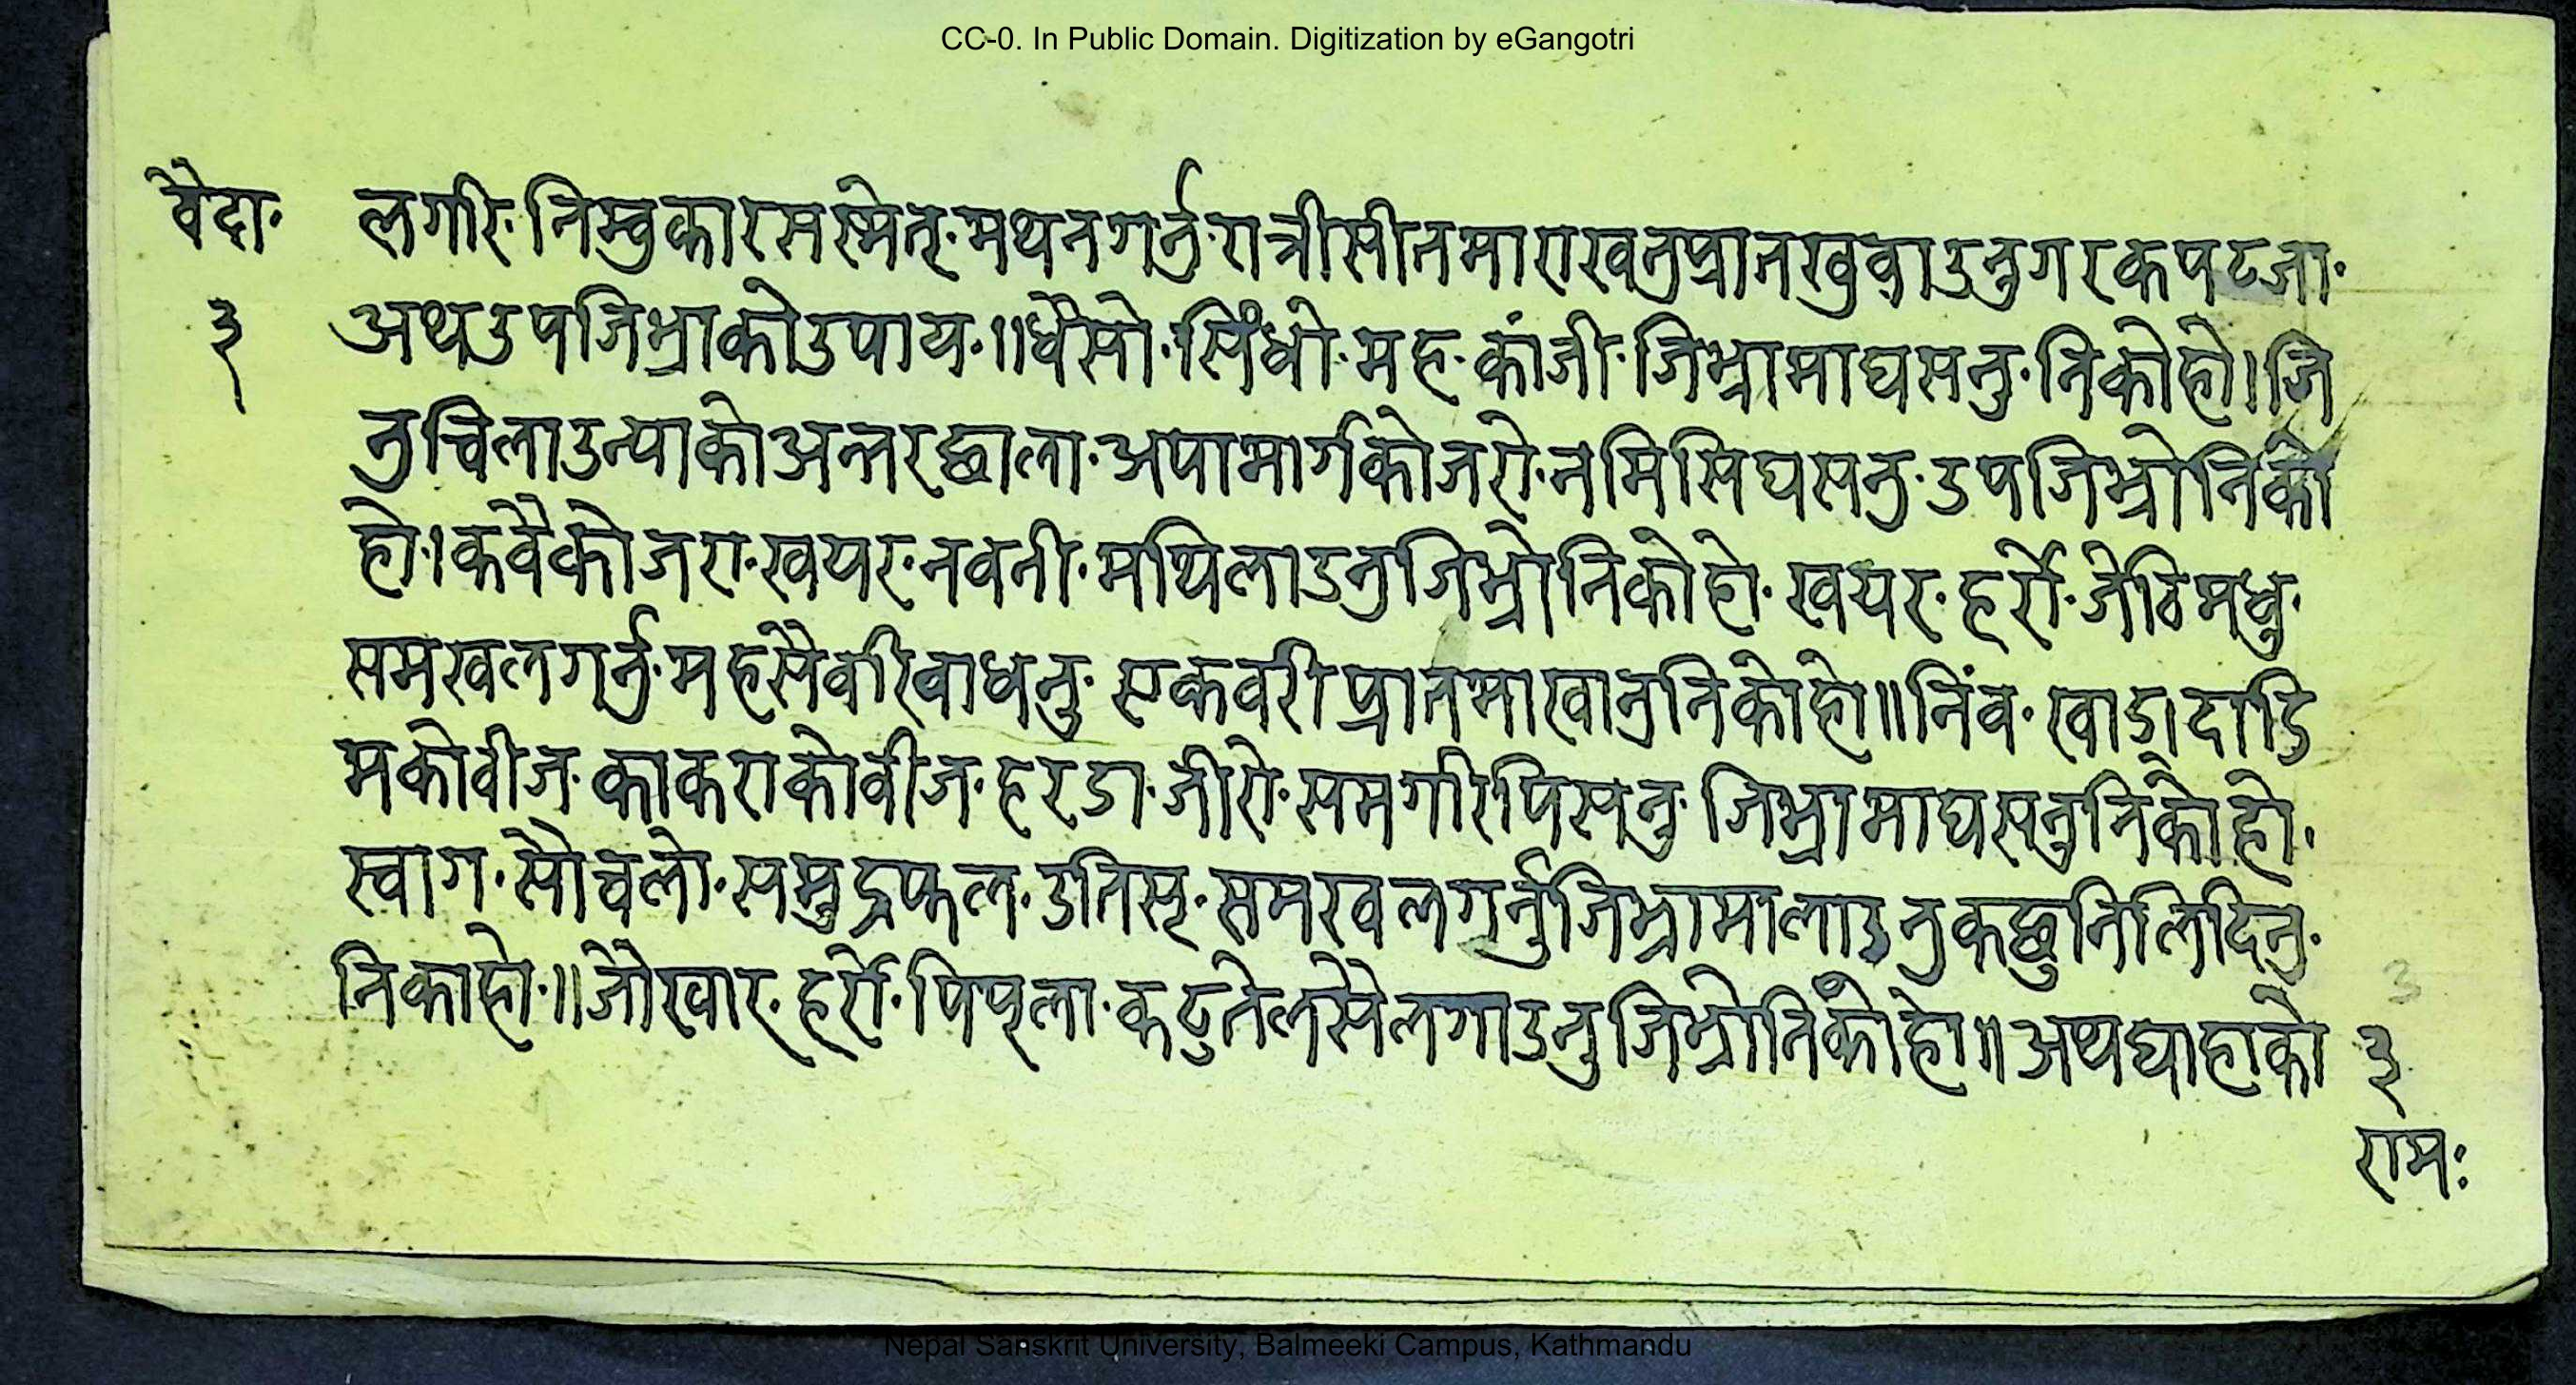 CC-0. In Public Domain. Digitization by eGangotri
वैदा·
लगरि·निम्वुकारससमेत्·मथनगर्नु·रात्रीसीतमाराखनुप्रातखुवाउनुगरकपटजा·
३
अथउपजिभ्राकोउपाय·॥धैसो·सिंधो·मह·कांजी·जिभ्रामाघसनु·निकोहो।जि
नुचिलाउन्याकोअन्तरछाला·अपामार्गकोजरो·नमिसिघसनु·उपजिभ्रोनिको
हो·।कवैकोजरा·खयर·नवनी·मथिलाउनुजिभ्रोनिकोहो·खयर·हर्रो·जेठिमधु·
समखलगर्नु·महसैवरिवाधनु·एकवरीप्रातमाखानुनिकोहो॥निंव·खाड्·दाडि
मकोवीज·काकराकोवीज·हरडा·जीरो·समगरिपिसनु·जिभ्रामाघसनुनिकोहो·
स्वाग·सौचलो·समुद्रफल·उतिस्·समखलगर्नुजिभ्रामालाउनुकछुनिलिदिनु·
निकाहो·॥जौखार·हर्रो·पिप्ला·कटुतेलसेलगाउनुजिभ्रोनिकोहो॥अथघाहाको
3
३
रामः
Nepal Sanskrit University, Balmeeki Campus, Kathmandu